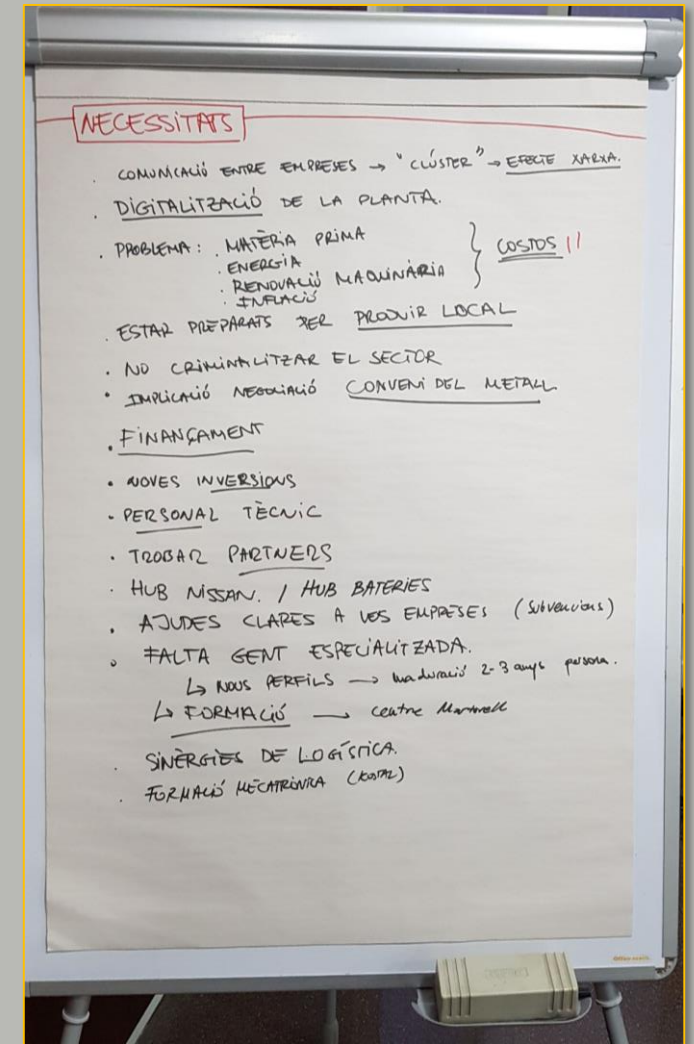 NECESSITATS
. COMUNICACIÓ ENTRE EMPRESES → "CLÚSTER" → EFECTE XARXA.
. DIGITALITZACIÓ DE LA PLANTA.
. PROBLEMA : . MATÈRIA PRIMA
. ENERGIA
. RENOVACIÓ MAQUINÀRIA } COSTOS !!
. INFLACIÓ
. ESTAR PREPARATS PER PRODUIR LOCAL
. NO CRIMINALITZAR EL SECTOR
• IMPLICACIÓ NEGOCIACIÓ CONVENI DEL METALL.
. FINANÇAMENT
• NOVES INVERSIONS
• PERSONAL TÈCNIC
• TROBAR PARTNERS
. HUB NISSAN. / HUB BATERIES
. AJUDES CLARES A LES EMPRESES (Subvencions)
• FALTA GENT ESPECIALITZADA.
↳ NOUS PERFILS → maduració 2-3 anys persona.
↳ FORMACIÓ → centre Martorell
. SINÈRGIES DE LOGÍSTICA.
. FORMACIÓ MECATRÒNICA (KOSTAL)